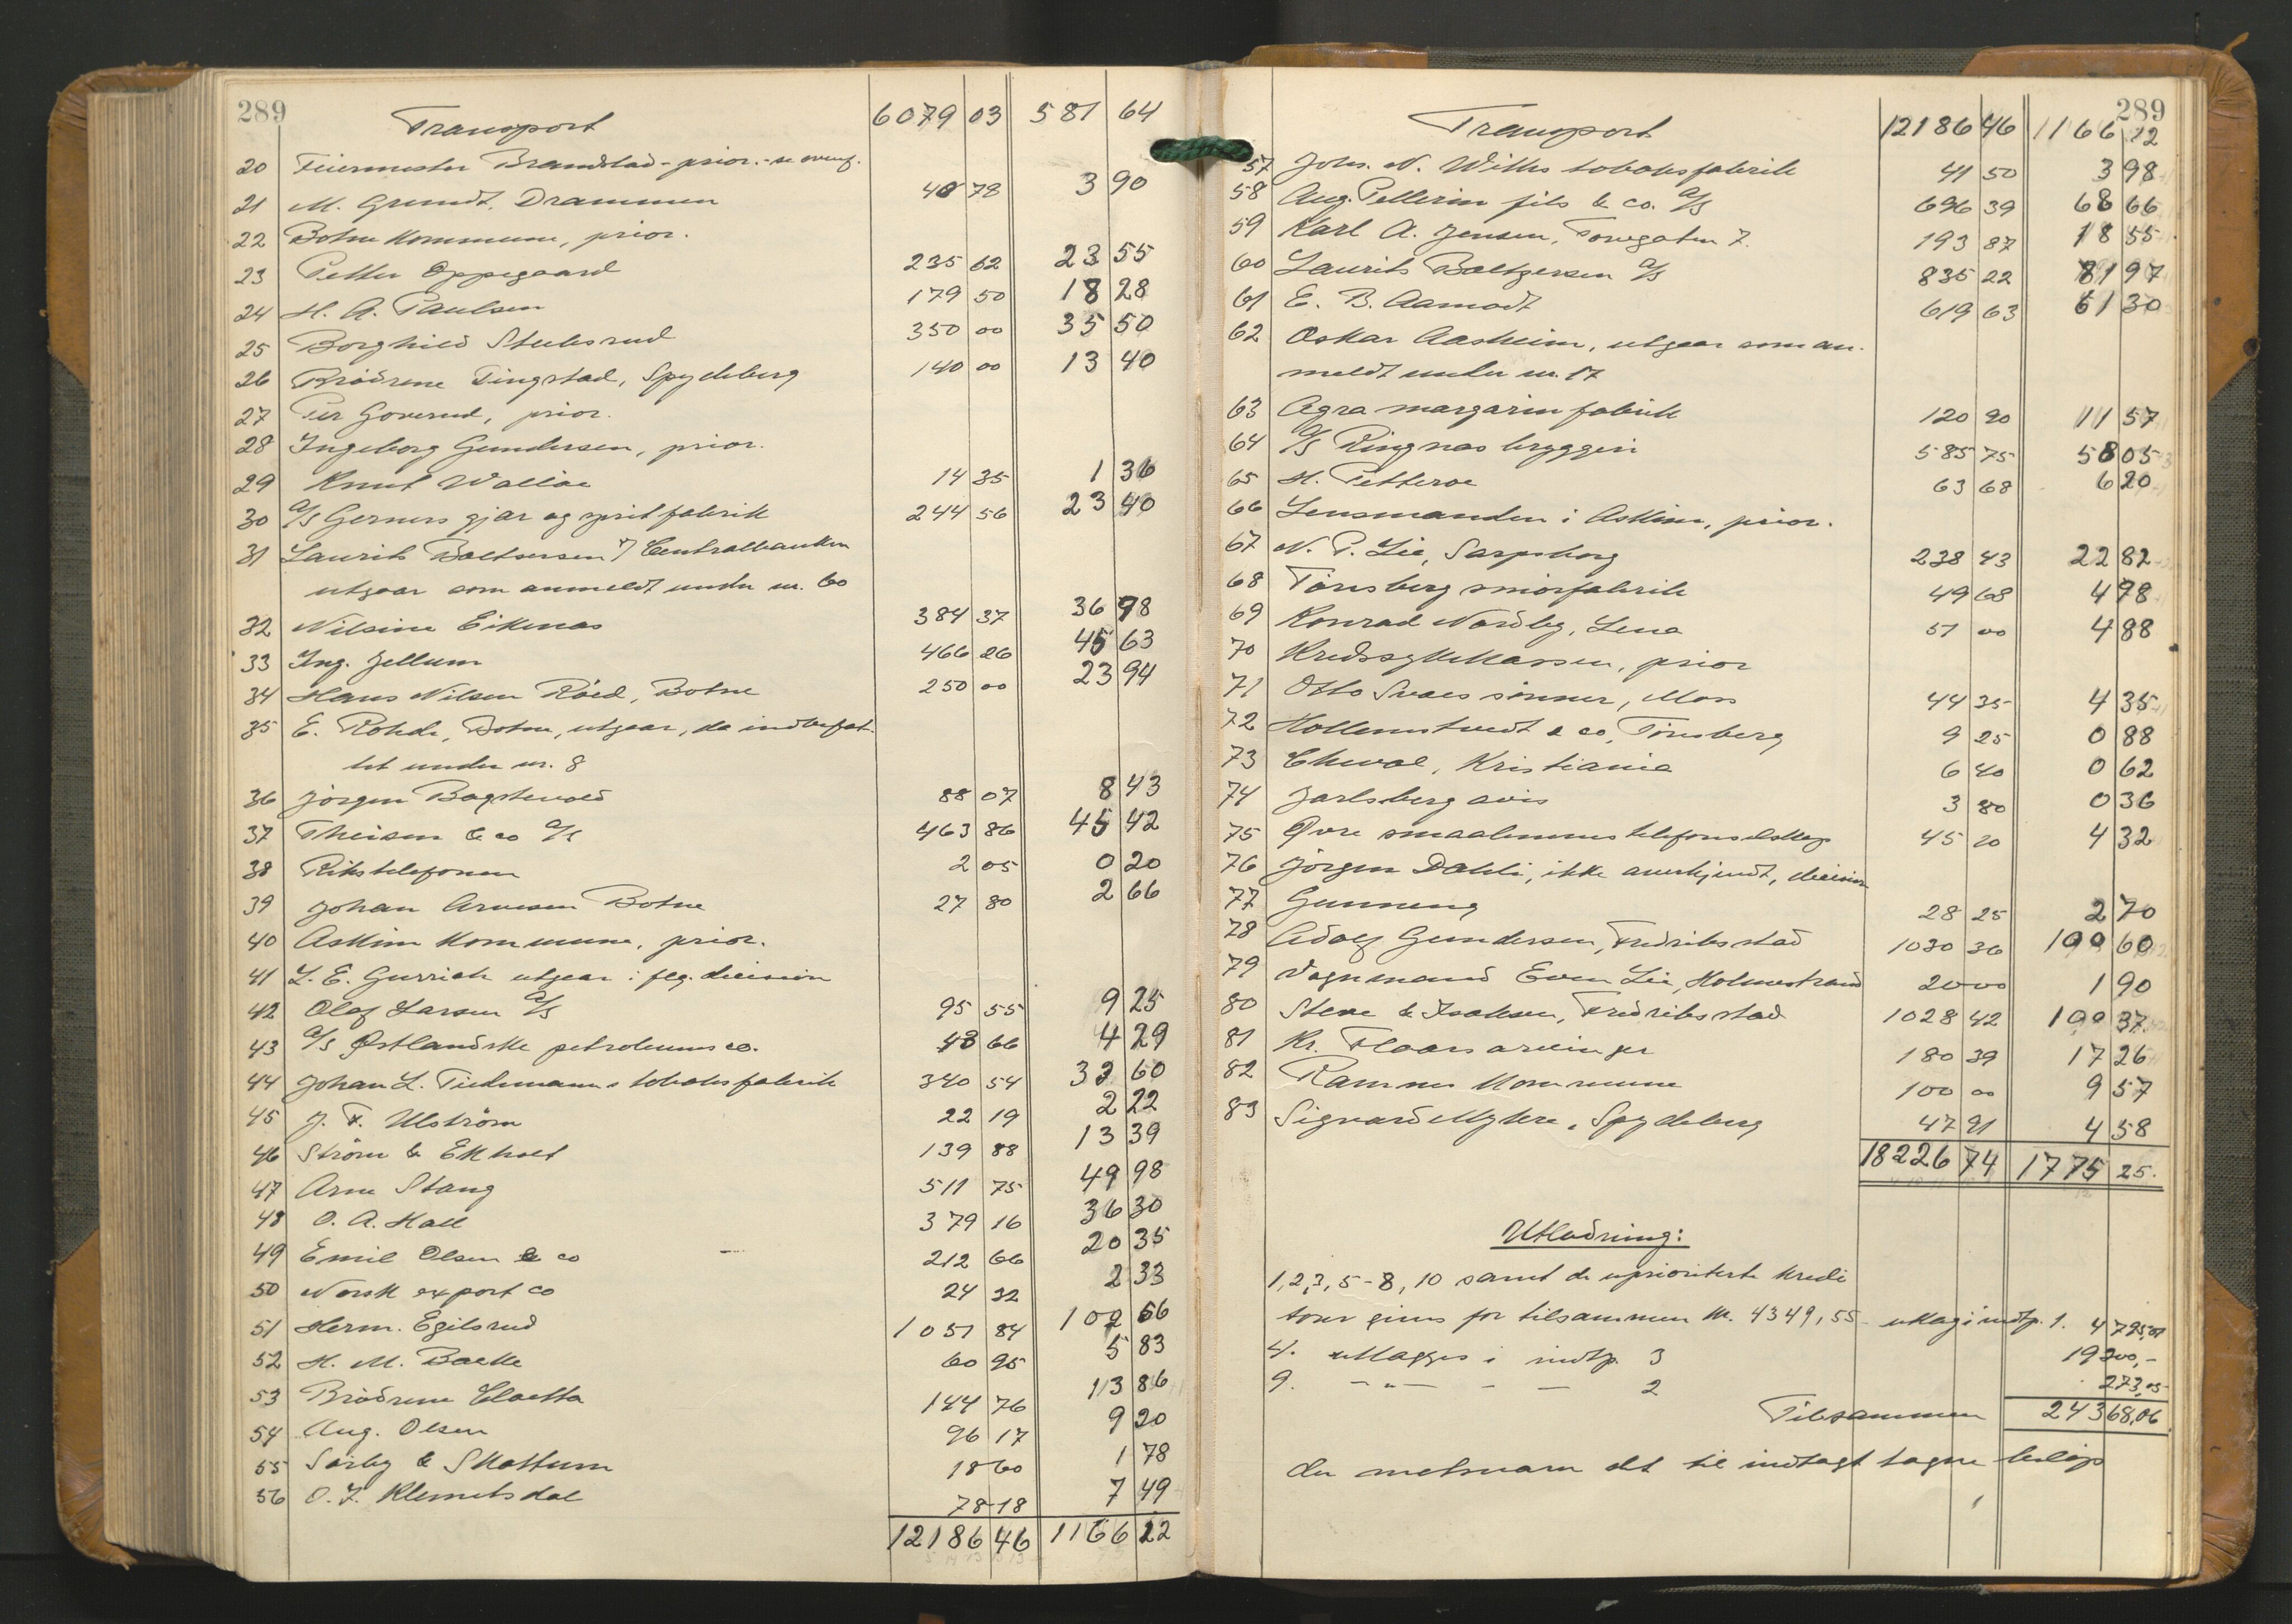 289
Transport 6079 03 581 64
20 Feiermester Brandstad - prior. - se ovenf.
21 M. Grundt, Drammen 40 78 3 90
22 Botne kommune, prior.
23 Petter Oppegaard 235 62 23 55
24 H. A. Paulsen 179 50 18 28
25 Borghild Stubsrud 350 00 35 50
26 Brödrene Tingstad, Spydeberg 140 00 13 40
27 Per Goverud, prior.
28 Ingeborg Gundersen, prior.
29 Knut Walløe 14 35 1 36
30 A/S Gerners gjær og spritfabrik 244 56 23 40
31 Laurits Boltsersen % Centralbanken
utgaar som anmeldt under nr. 60
32 Nilsine Eiknas 384 37 36 98
33 Ing. Jellum 466 26 45 63
34 Hans Nilsen Röed, Botne 250 00 23 94
35 E. Rohde, Botne, utgaar, da indbefat-
tet under nr. 8
36 Jörgen Bagstevold 88 07 8 43
37 Theisen & co A/S 463 86 45 42
38 Rikstelefonen 2 05 0 20
39 Johan Arvesen Botne 27 80 2 66
40 Askim kommune, prior.
41 L. E. Gurrich utgaar i flg. decision
42 Olaf Larsen A/S 95 55 9 25
43 A/S Østlandske petroleums co. 43 66 4 29
44 Johan L. Tiedemanns tobaksfabrik 340 54 33 60
45 J. F. Ulström 22 19 2 22
46 Ström & Ekholt 139 88 13 39
47 Arne Stang 511 75 49 98
48 O. A. Hall 379 16 36 30
49 Emil Olsen & co 212 66 20 35
50 Norsk export co 24 32 2 33
51 Herm. Egilsrud 1051 84 102 66
52 H. M. Bakke 60 95 5 83
53 Brödrene Cloetta 144 76 13 86
54 Aug. Olsen 96 17 9 20
55 Sörby & Skottum 18 60 1 78
56 O. J. Klemetsdal 78 18 7 49
12186 46 1166 22
289
Transport 12186 46 1166 22
57 Johs. N. Wiltes tobaksfabrik 41 50 3 98
58 Aug. Pellerin fils & co. A/S 696 39 68 66
59 Karl A. Jensen, Torvgaten 7. 193 87 18 55
60 Laurits Boltzersen A/S 835 22 81 97
61 E. B. Aamodt 619 63 61 30
62 Oskar Aasheim, utgaar som an-
meldt under nr. 17
63 Agra margarinfabrik 120 90 11 57
64 A/S Ringnes bryggeri 585 75 58 05
65 H. Petterøe 63 68 6 20
66 Lensmanden i Askim, prior.
67 N. P. Lie, Sarpsborg 238 43 22 82
68 Tönsberg smörfabrik 49 68 4 78
69 Konrad Nordby, Lena 51 00 4 88
70 Kredssykekassen, prior
71 Otto Svaes sönner, Moss 44 35 4 35
72 Hollenstvedt & co, Tönsberg 9 25 0 88
73 Cheval, Kristiania 6 40 0 62
74 Jarlsberg avis 3 80 0 36
75 Øvre smaalenenes telefonselskap 45 20 4 32
76 Jörgen Dahli, ikke anerkjendt, decision
77 Gunneng 28 25 2 70
78 Adolf Gundersen, Fredriksstad 1030 36 100 60
79 Vognmand Even Lie, Holmestrand 20 00 1 90
80 Stene & Isaksen, Fredriksstad 1028 42 100 37
81 Kr. Floors arvinger 180 39 17 26
82 Ramnes kommune 100 00 9 57
83 Sigvard Myhre, Spydeberg 47 91 4 58
18226 74 1775 25.
Utlodning:
1, 2, 3, 5-8, 10 samt de uprioriterte kredi
torer gives for tilsammen kr. 4349,55 utlæg i indtp. 1. 4795,01
4. utlægges i indtp. 3 19300,-
9. - „ - - - 2 273,05
Tilsammen 24368,06
der motsvarer det til indtægt tagne belöp